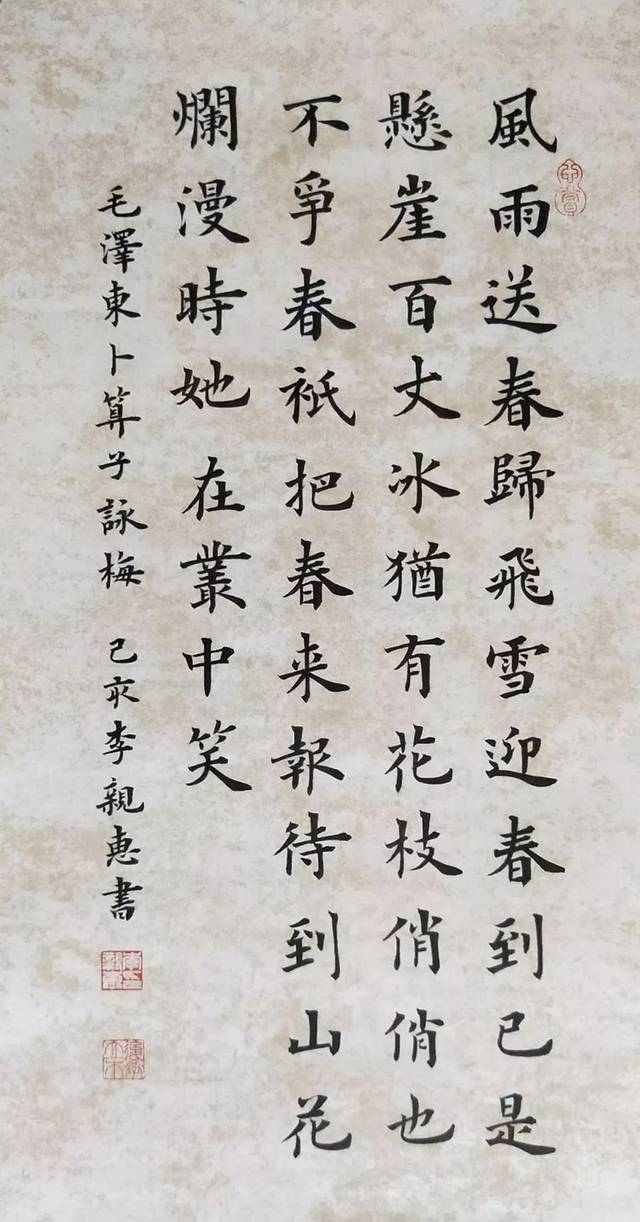 風雨送春歸飛雪迎春到已是
懸崖百丈冰猶有花枝俏俏也
不爭春祇把春来報待到山花
爛漫時她在叢中笑
毛澤東卜算子詠梅 己亥李親惠書